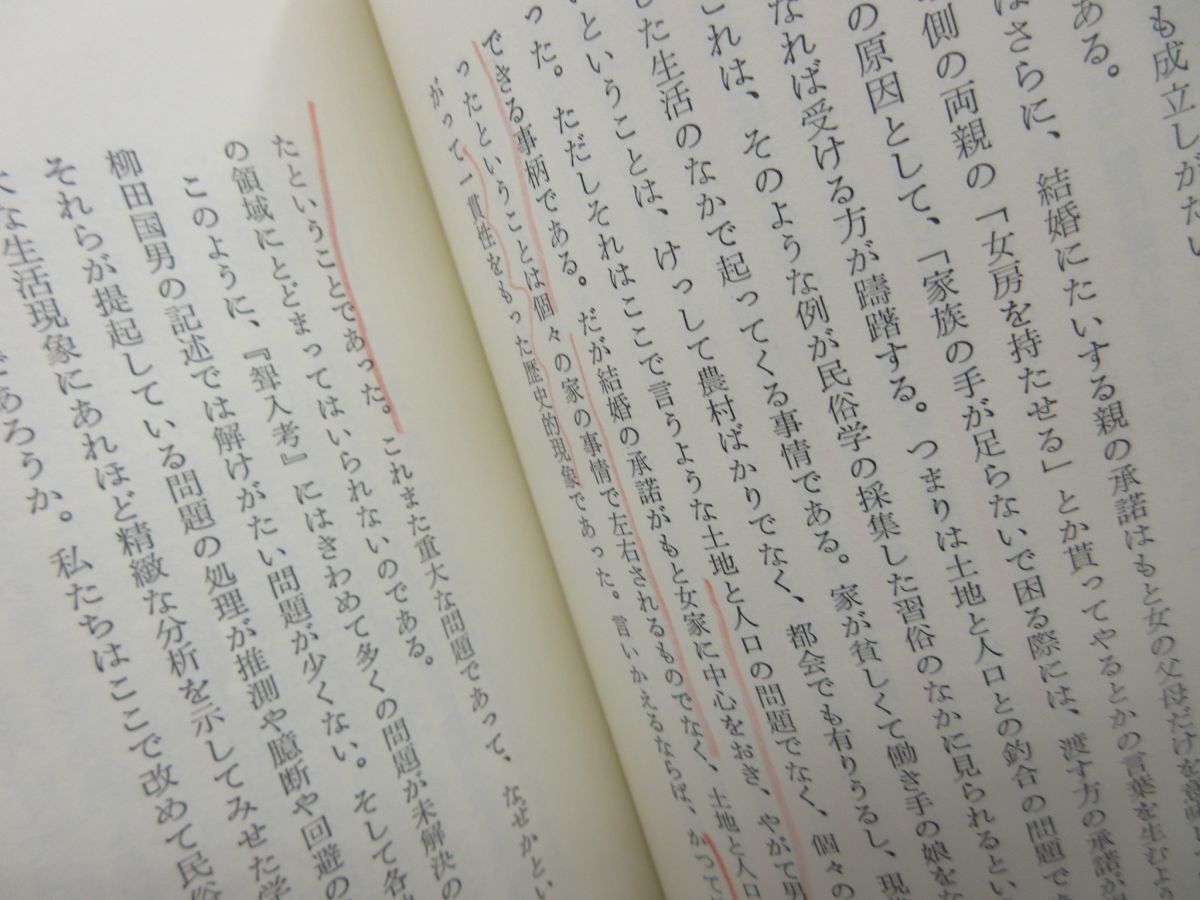 も成立しがたい
ある。
はさらに、結婚にたいする親の承諾はもと女の父母だけを意味
側の両親の「女房を持たせる」とか貰ってやるとかの言葉を生むよう
の原因として、「家族の手が足らないで困る際には、渡す方の承諾が
なれば受ける方が躊躇する。つまりは土地と人口との釣合の問題で
これは、そのような例が民俗学の採集した習俗のなかに見られるとい
した生活のなかで起ってくる事情である。家が貧しくて働き手の娘をな
いということは、けっして農村ばかりでなく、都会でも有りうるし、現
った。ただしそれはここで言うような土地と人口の問題でなく、個々の
できる事柄である。だが結婚の承諾がもと女家に中心をおき、やがて男
ったということは個々の家の事情で左右されるものでなく、土地と人口
がって一貫性をもった歴史的現象であった。言いかえるならば、かつて
たということであった。これまた重大な問題であって、なぜかとい
の領域にとどまってはいられないのである。
このように、『聟入考』にはきわめて多くの問題が未解決の
柳田国男の記述では解けがたい問題が少くない。そして各
それらが提起している問題の処理が推測や臆断や回避の
な生活現象にあれほど精緻な分析を示してみせた学
であろうか。私たちはここで改めて民俗